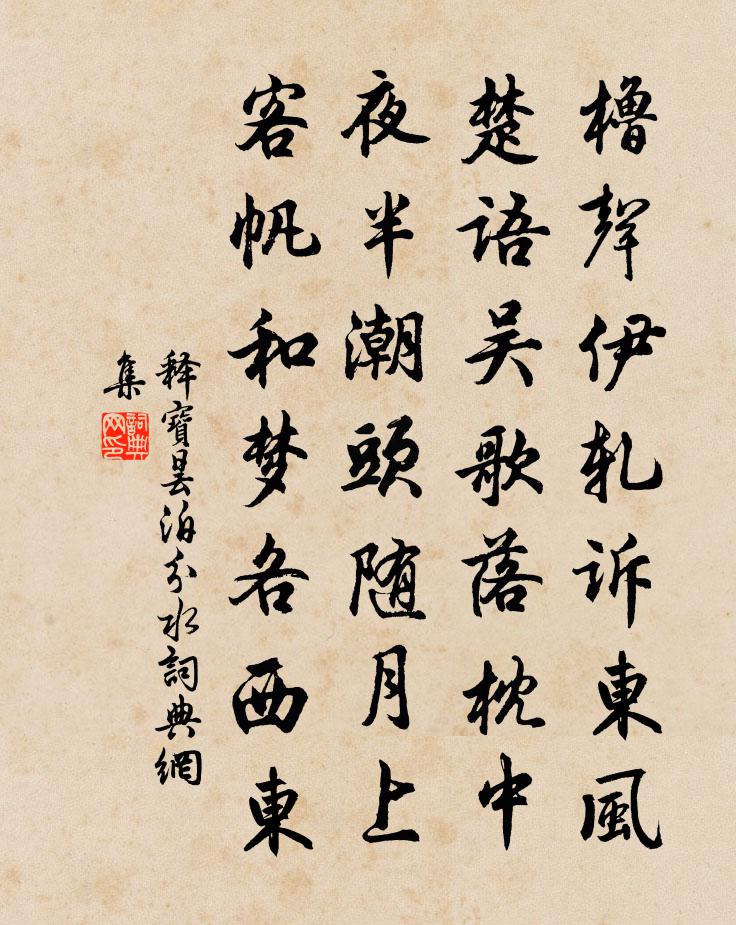 櫓聲伊軋訴東風
楚語吴歌落枕中
夜半潮頭随月上
客帆和梦各西東
釋寶曇泊分水詞典網
集
詞典
网印